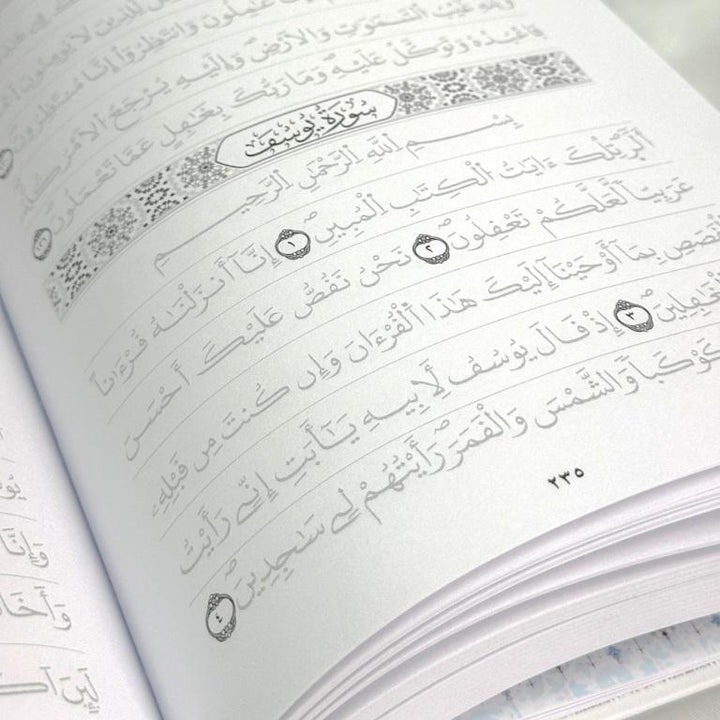 عَٰمِلُونَ وَانتَظِرُوٓاْ إِنَّا مُنتَظِرُونَ
وَلِلهِ غَيْبُ السَّمَٰوَٰتِ وَالْأَرْضِ وَإِلَيْهِ يَرْجِعُ الْأَمْرُ كُلُّهُۥ
فَاعْبُدْهُ وَتَوَكَّلْ عَلَيْهِ وَمَا رَبُّكَ بِغَٰفِلٍ عَمَّا تَعْمَلُونَ
سُورَةُ يُوسُفَ
بِسْمِ اللَّهِ الرَّحْمَٰنِ الرَّحِيمِ
أَلَٓرۖ تِلْكَ ءَايَٰتُ الْكِتَٰبِ الْمُبِينِۖ ١ إِنَّآ أَنزَلْنَٰهُ قُرْءَٰناً
عَرَبِيّاً لَّعَلَّكُمْ تَعْقِلُونَۖ ٢ نَحْنُ نَقُصُّ عَلَيْكَ أَحْسَنَ
الْقَصَصِ بِمَآ أَوْحَيْنَآ إِلَيْكَ هَٰذَا الْقُرْءَانَ وَإِن كُنتَ مِن قَبْلِهِۦ
الْغَٰفِلِينَۖ ٣ إِذْ قَالَ يُوسُفُ لِأَبِيهِ يَٰٓأَبَتِ إِنِّے رَأَيْتُ
كَوْكَباً وَالشَّمْسَ وَالْقَمَرَ رَأَيْتُهُمْ لِے سَٰجِدِينَۖ ٤
٢٣٥